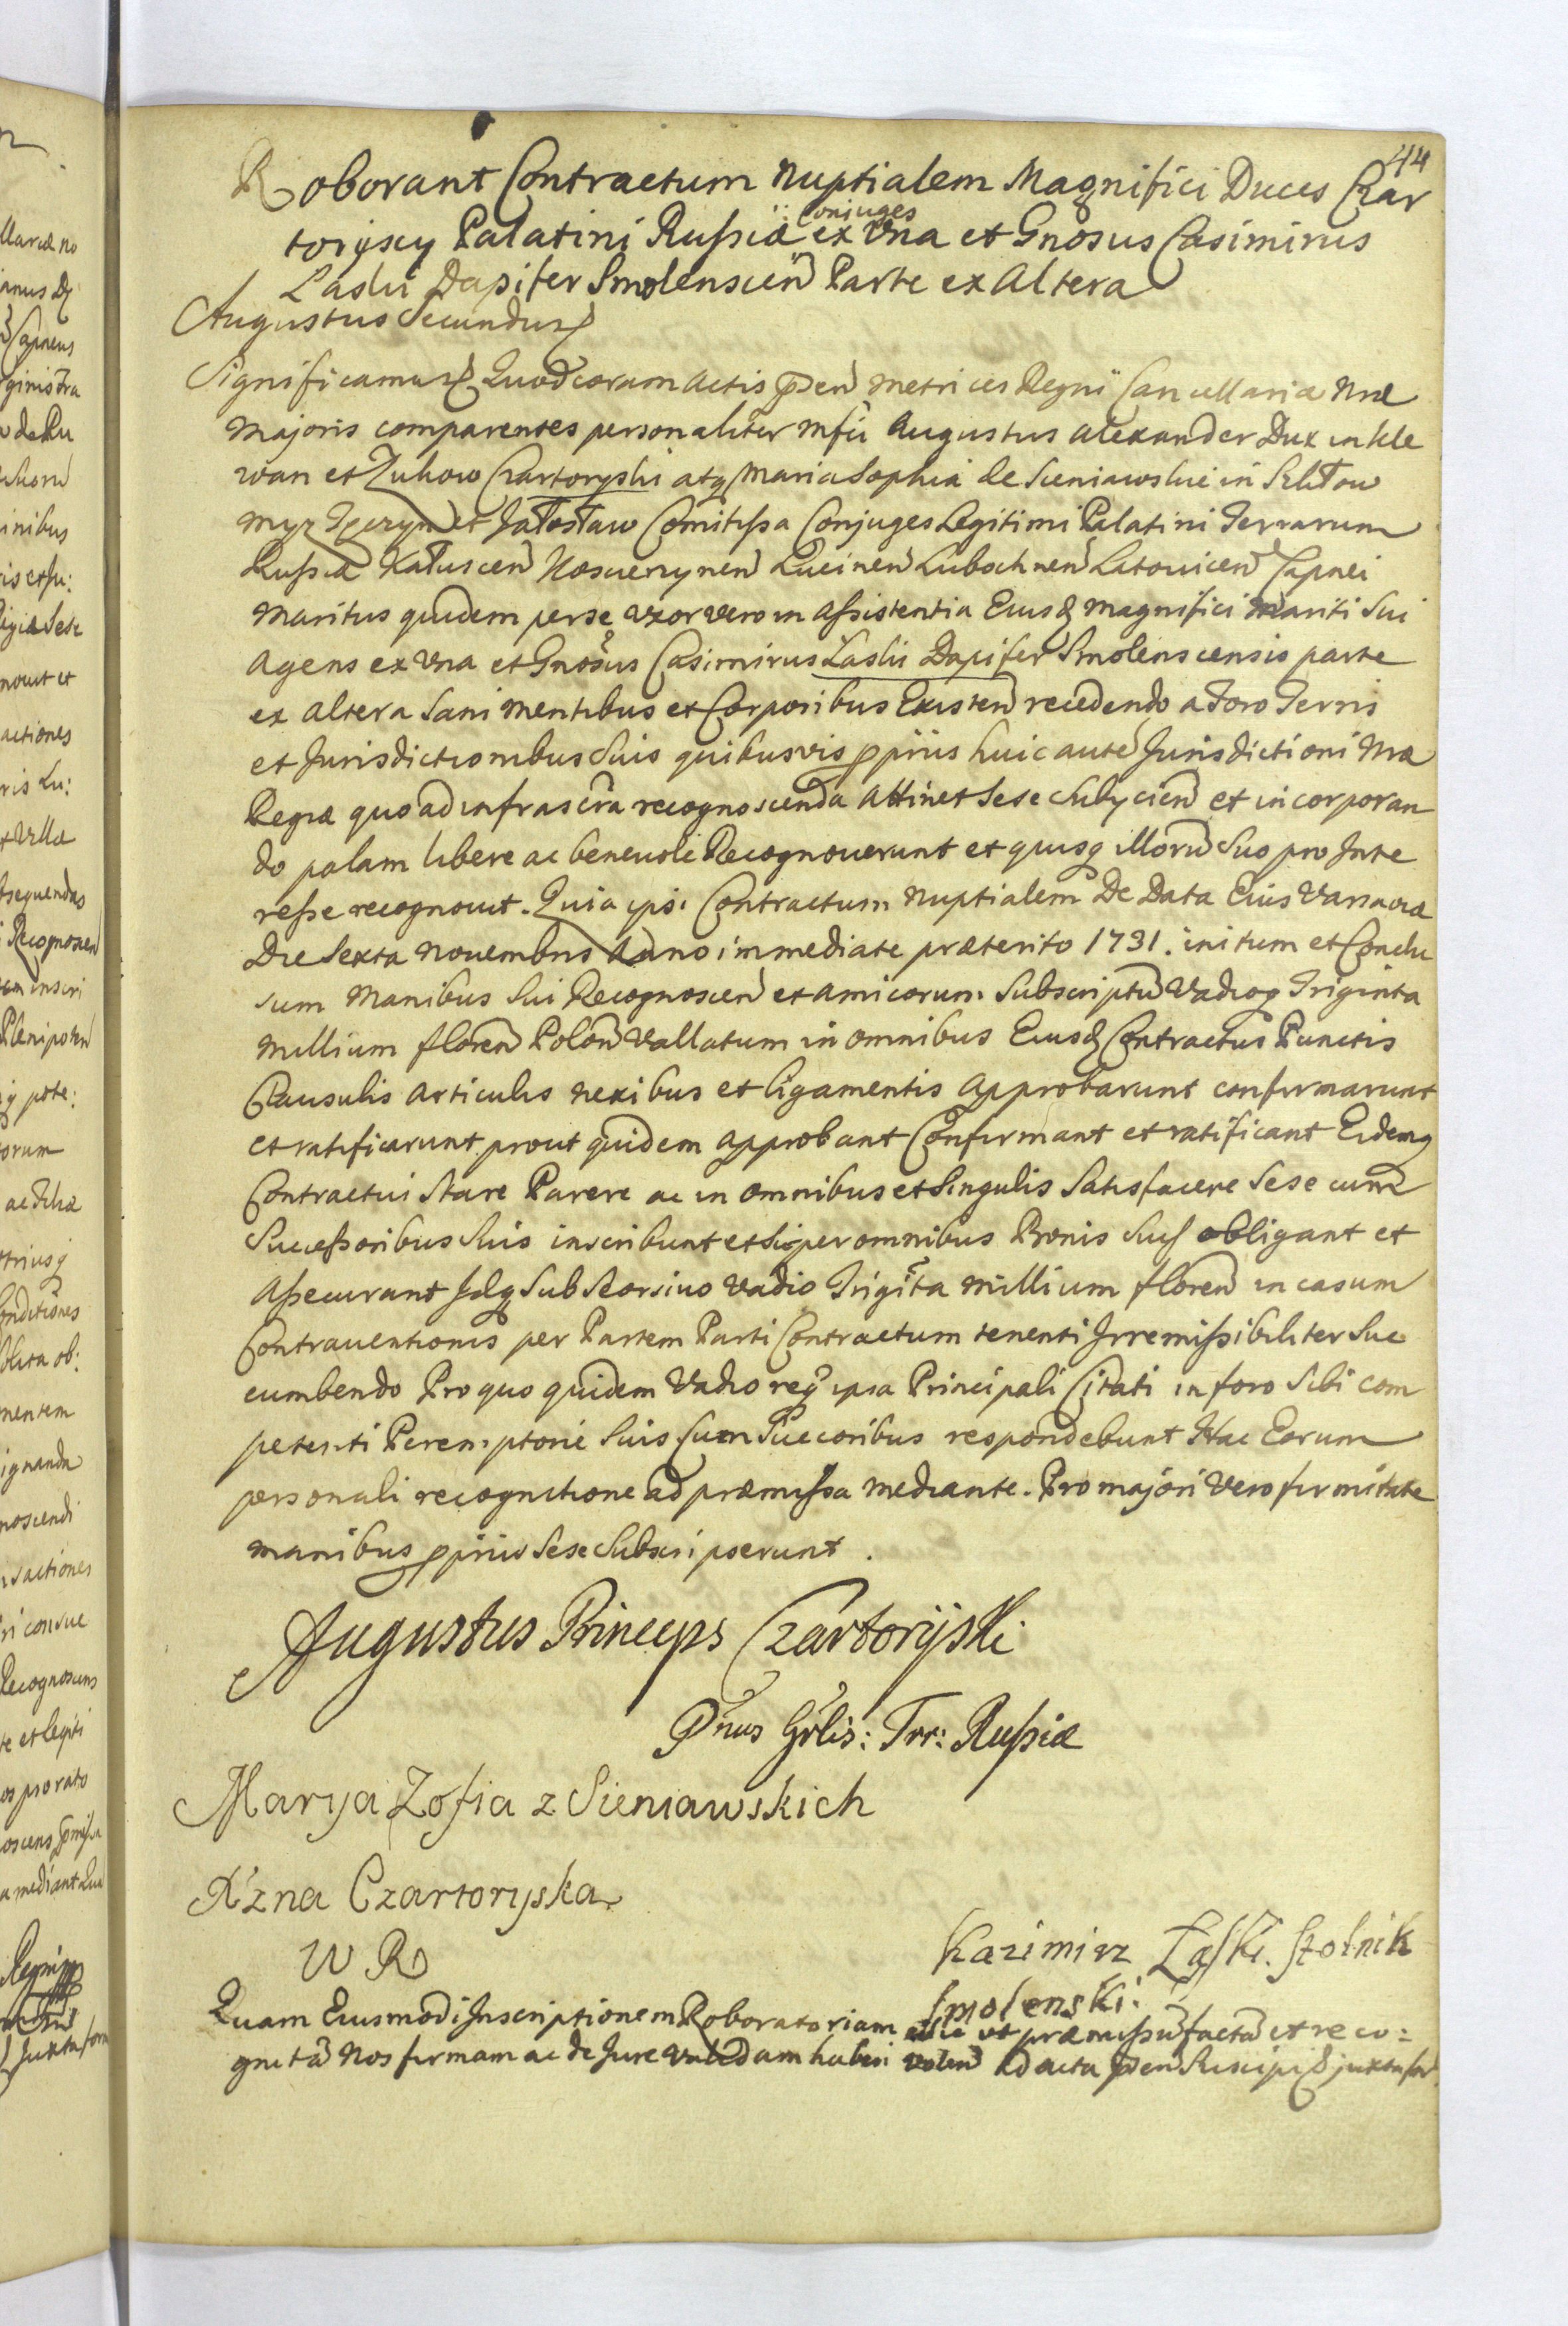 44
Roborant Contractum Nuptialem Magnifici Duces Czar
toryscy Palatini Russiæ Conjuges ex Una et Gnosus Casimirus
Laski Dapifer Smolenscien Parte ex Altera
Augustus Secundus
Significamus Quod coram Actis psen Metrices Regni Cancellariæ Nræ
Majoris comparentes personaliter Mfci Augustus Alexander Dux in Kle
wan et Zukow Czartoryski atq Maria Sophia de Sieniawskie in Szkłow
Mysz et Jarosław Comitissa Conjuges Legitimi Palatini Terrarum
Russiæ Kałuscen Lucinen Lubochnen Latovicen Capnei
Maritus quidem per se Uxor vero in Assistentia Eiusd Magnifici Mariti Sui
Agens ex Una et Gnosus Casimirus Laski Dapifer Smolenscensis parte
ex altera Sani Mentibus et Corporibus Existen recedendo a Foro Terris
et Jurisdictionibus Suis quibusvis ppriis huic aute Jurisdictioni Nræ
Regiæ quo ad infrascra recognoscenda Attinet Sese Subycien et incorporan
do palam libere ac benevole Recognoverunt et quisq illoru Suo pro Inte
resse recognovit. Quia ipsi Contractum Nuptialem De Data Eius Varsaviæ
Die Sexta Novembris Anno immediate præterito 1731. initum et Conclu
sum Manibus Sui Recognoscen et amicorum Subscriptu Vadioq Triginta
Millium floren Polon Vallatum in omnibus Eiusd Contractus Punctis
Clausulis Articulis nexibus et ligamentis Approbarunt confirmarunt
et ratificarunt prout quidem approbant Confirmant et ratificant Eidemq
Contractui Stare Parere ac in omnibus et Singulis Satisfacere Sese cum
Successoribus Suis inscribunt et Super omnibus Bonis Suis obligant et
Assecurant Idq Sub Seorsivo Vadio Trigita Millium floren in casum
Contraventionis per Partem Parti Contractum tenenti Irremissibiliter Suc
cumbendo Pro quo quidem Vadio req ipsa Principali Citati in foro Sibi com
petenti Peremptorie Suis Cum Succoribus respondebunt Hac Eorum
personali recognitione ad præmissa mediante. Pro majori Vero firmitate
manibus ppriis Sese Subscripserunt.
Augustus Princeps Czartoryski
Gnrlis: Trr: Russiæ
Marya Zofia z Sieniawskich
Xżna Czartoryska
W R
Kazimirz Łaski. Stolnik
Smolenski.
Quam Eiusmodi Inscriptionem Roboratoriam sic ut præmissu facta et reco:
gnita Nos firmam ac de Jure Validam haberi volen ad acta psen Suscipi juxta for